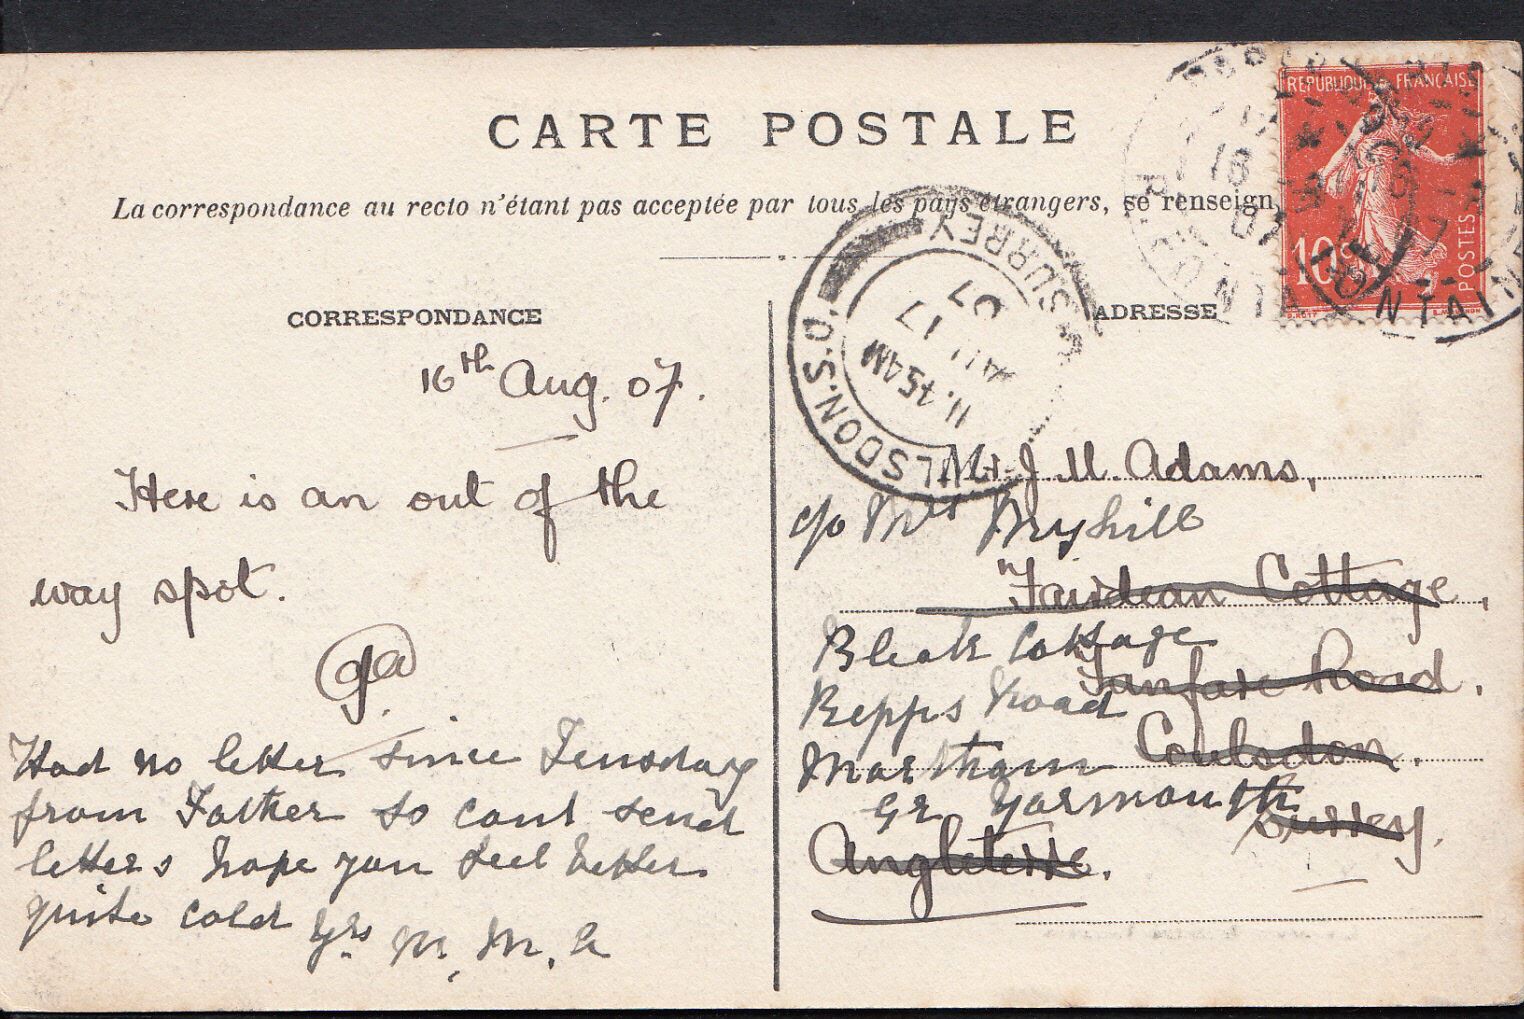 CARTE POSTALE
La correspondance au recto n'étant pas acceptée par tous les pays étrangers, se renseign
REPUBLIQUE FRANÇAISE
10c
POSTES
COULSDON.S.O. SURREY
11.45AM
AU 17
07
CORRESPONDANCE
16th Aug. 07.
Here is an out of the
way spot.
Had no letter since Teusday
from Father so cant send
letters hope you feel better
quite cold Yrs M. M. A
ADRESSE
J. M. Adams,
c/o Mrs Myhill
"Fairdean Cottage,
Bleak Cottage
Fanfare Road.
Repps Road
Coulsdon.
Martham
Gr Yarmouth
Surrey.
Angleterre.